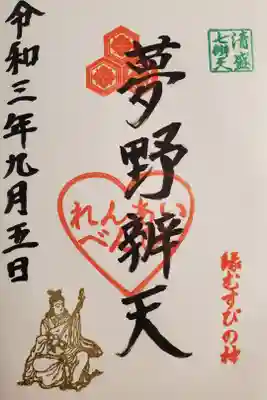 清盛
七辨天
縁むすびの神
夢野辨天
れんあい
べん
令和三年九月五日